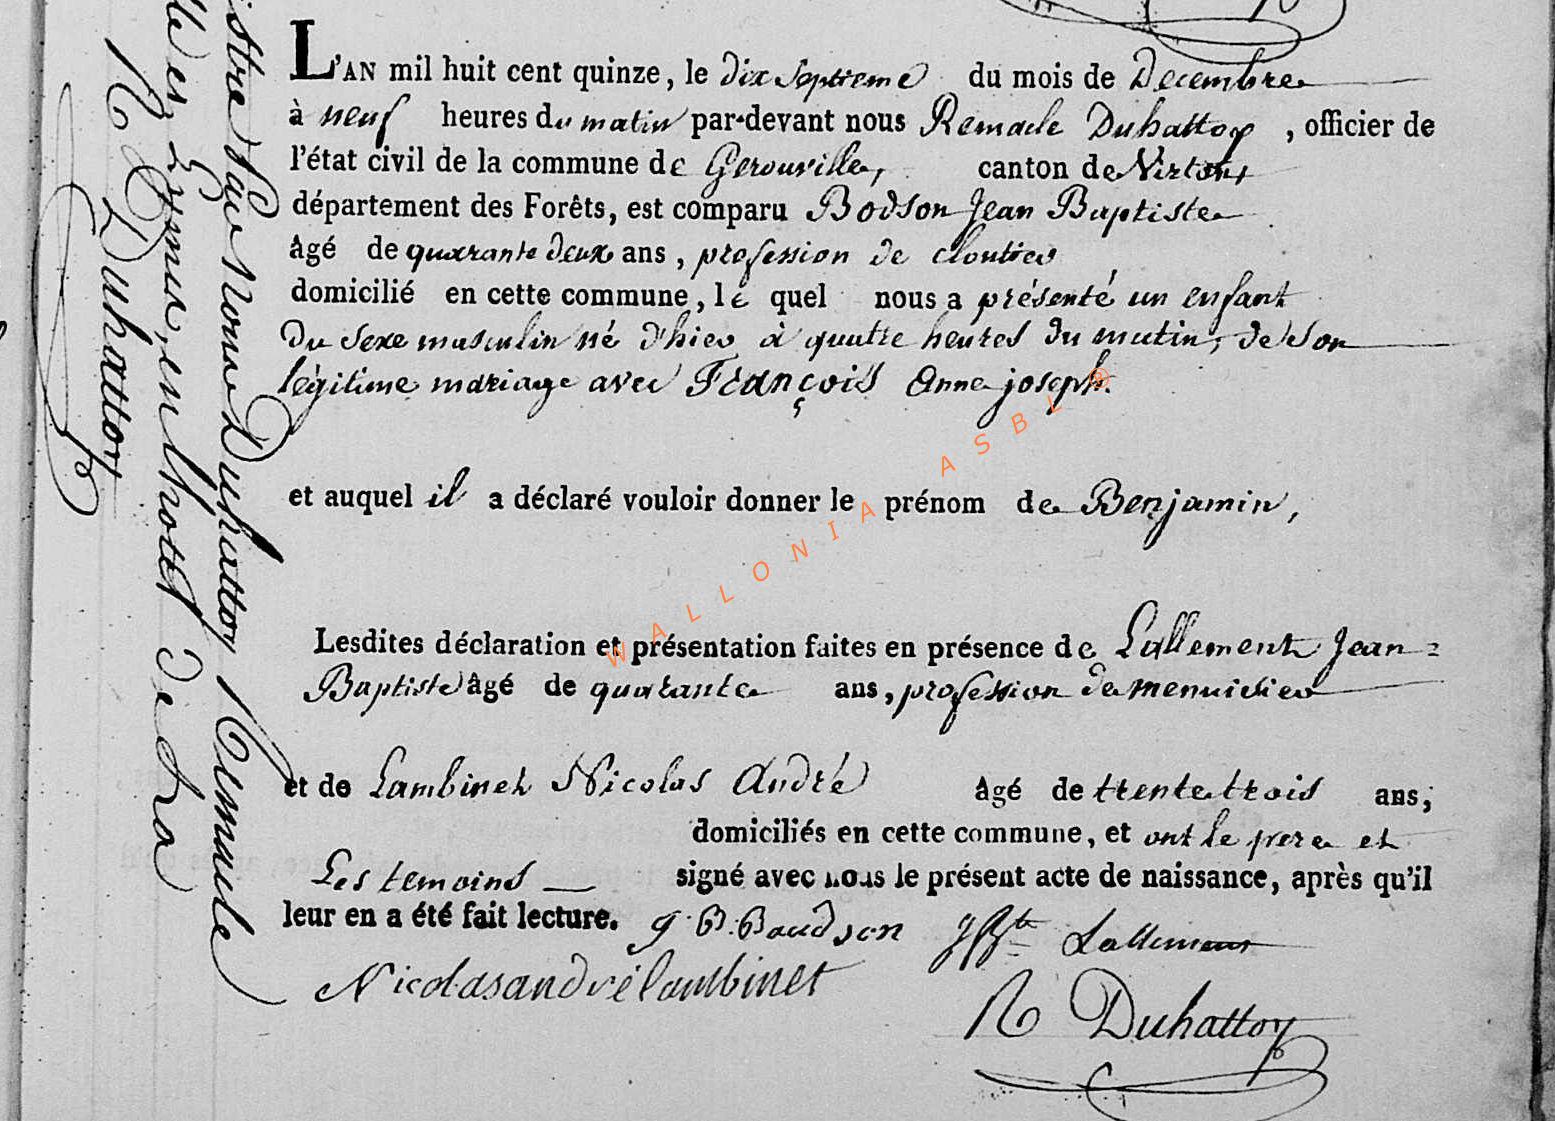 L'AN mil huit cent quinze, le dix septieme du mois de Decembre
à neuf heures du matin par-devant nous Remacle Duhattoy, officier de
l'état civil de la commune de Gerouville, canton de Virton,
département des Forêts, est comparu Bodson Jean Baptiste
âgé de quarante deux ans, profession de cloutier
domicilié en cette commune, le quel nous a présenté un enfant
du sexe masculin né d'hier à quatre heures du matin, de son
légitime mariage avec François Anne joseph.
et auquel il a déclaré vouloir donner le prénom de Benjamin,
Lesdites déclaration et présentation faites en présence de Lallement Jean=
Baptiste âgé de quarante ans, profession de menuisier
et de Lambinet Nicolas André âgé de trente trois ans;
domiciliés en cette commune, et ont le pere et
Les temoins signé avec nous le présent acte de naissance, après qu'il
leur en a été fait lecture. J. B. Baudson JBte Lallement
Nicolas andré lambinet
R Duhattoy
istre par nous Duhattoy Remacle
en l'hotel de La
R Duhattoy
WALLONIA ASBL ®